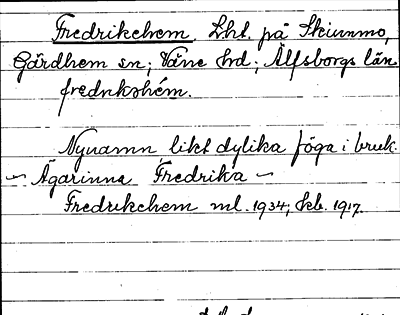 Fredrikehem. Lht. på Skiunmo,
Gärdhem sn; Väne hrd; Älfsborgs län
fredrikəhém.
Nynamn likt dylika föga i bruk.
— Ägarinna Fredrika —
Fredrikehem ml. 1934; Ekb. 1917.